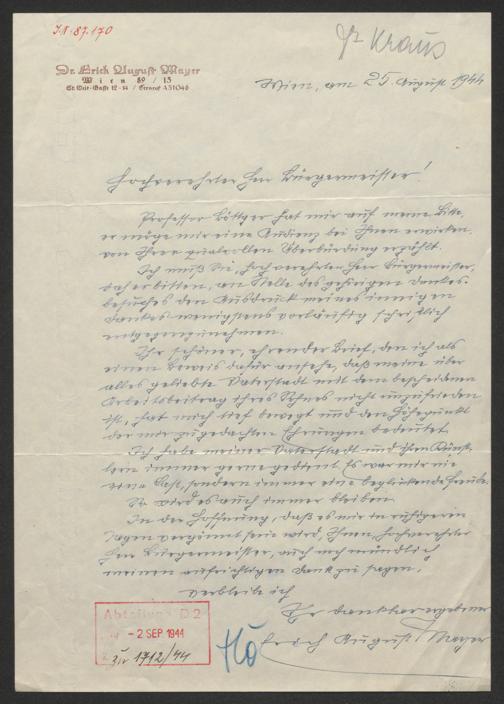 I.N. 87.170
Dr Kraus
Dr. Erich August Mayer
Wien 89 / 13
St. Veit-Gasse 12-14 / Fernruf A51046
Wien, am 25. August 1944
Hochverehrter Herr Bürgermeister!
Professor Böttger hat mir auf meine Bitte,
er möge mir eine Audienz bei Ihnen erwirken,
von Ihrer qualvollen Überbürdung erzählt.
Ich muß Sie, hochverehrten Herr Bürgermeister,
daher bitten, an Stelle des gehörigen Dankes-
besuches den Ausdruck meines innigen
Dankes wenigstens vorläufig schriftlich
entgegenzunehmen.
Ihr schöner, ehrender Brief, den ich als
einen Beweis dafür ansehe, daß meine über
alles geliebte Vaterstadt mit dem bescheidenen
Arbeitsbeitrag ihres Sohnes nicht unzufrieden
ist, hat mich tief bewegt und den Höhepunkt
der mir zugedachten Ehrungen bedeutet.
Ich habe meiner Vaterstadt und ihren Künst-
lern immer gerne gedient. Es war mir nie
eine Last, sondern immer eine beglückende Freude.
So wird es auch immer bleiben.
In der Hoffnung, daß es mir in ruhigeren
Tagen vergönnt sein wird, Ihnen, hochverehrter
Herr Bürgermeister, auch noch mündlich
meinen aufrichtigen Dank zu sagen,
verbleibe ich
Ihr dankbar ergebener
Erich August Mayer
Abteilung D 2
- 2 SEP 1944
Zu 1712/44